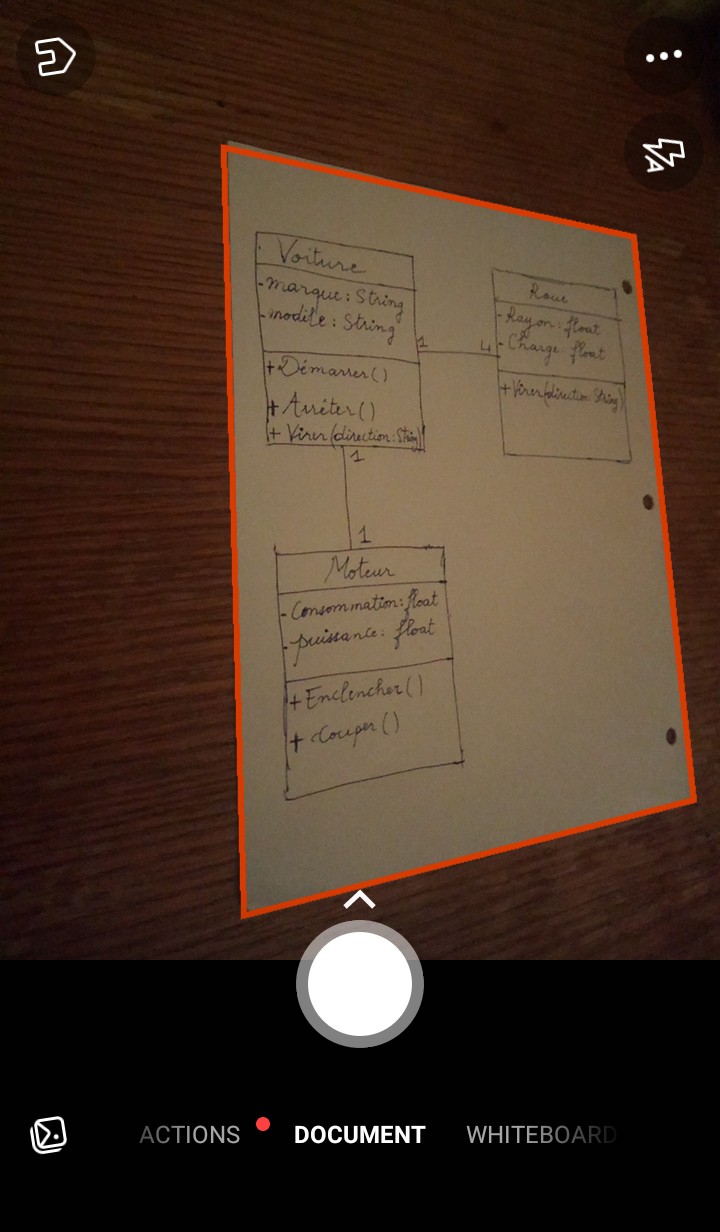 Voiture
- marque : String
- modèle : String
+ Démarrer ()
+ Arrêter ()
+ Virer (direction : String)
1
4
Roue
- Rayon : float
- Charge : float
+ Virer (direction : String)
1
1
Moteur
- Consommation : float
- puissance : float
+ Enclencher ()
+ Couper ()
ACTIONS
DOCUMENT
WHITEBOARD